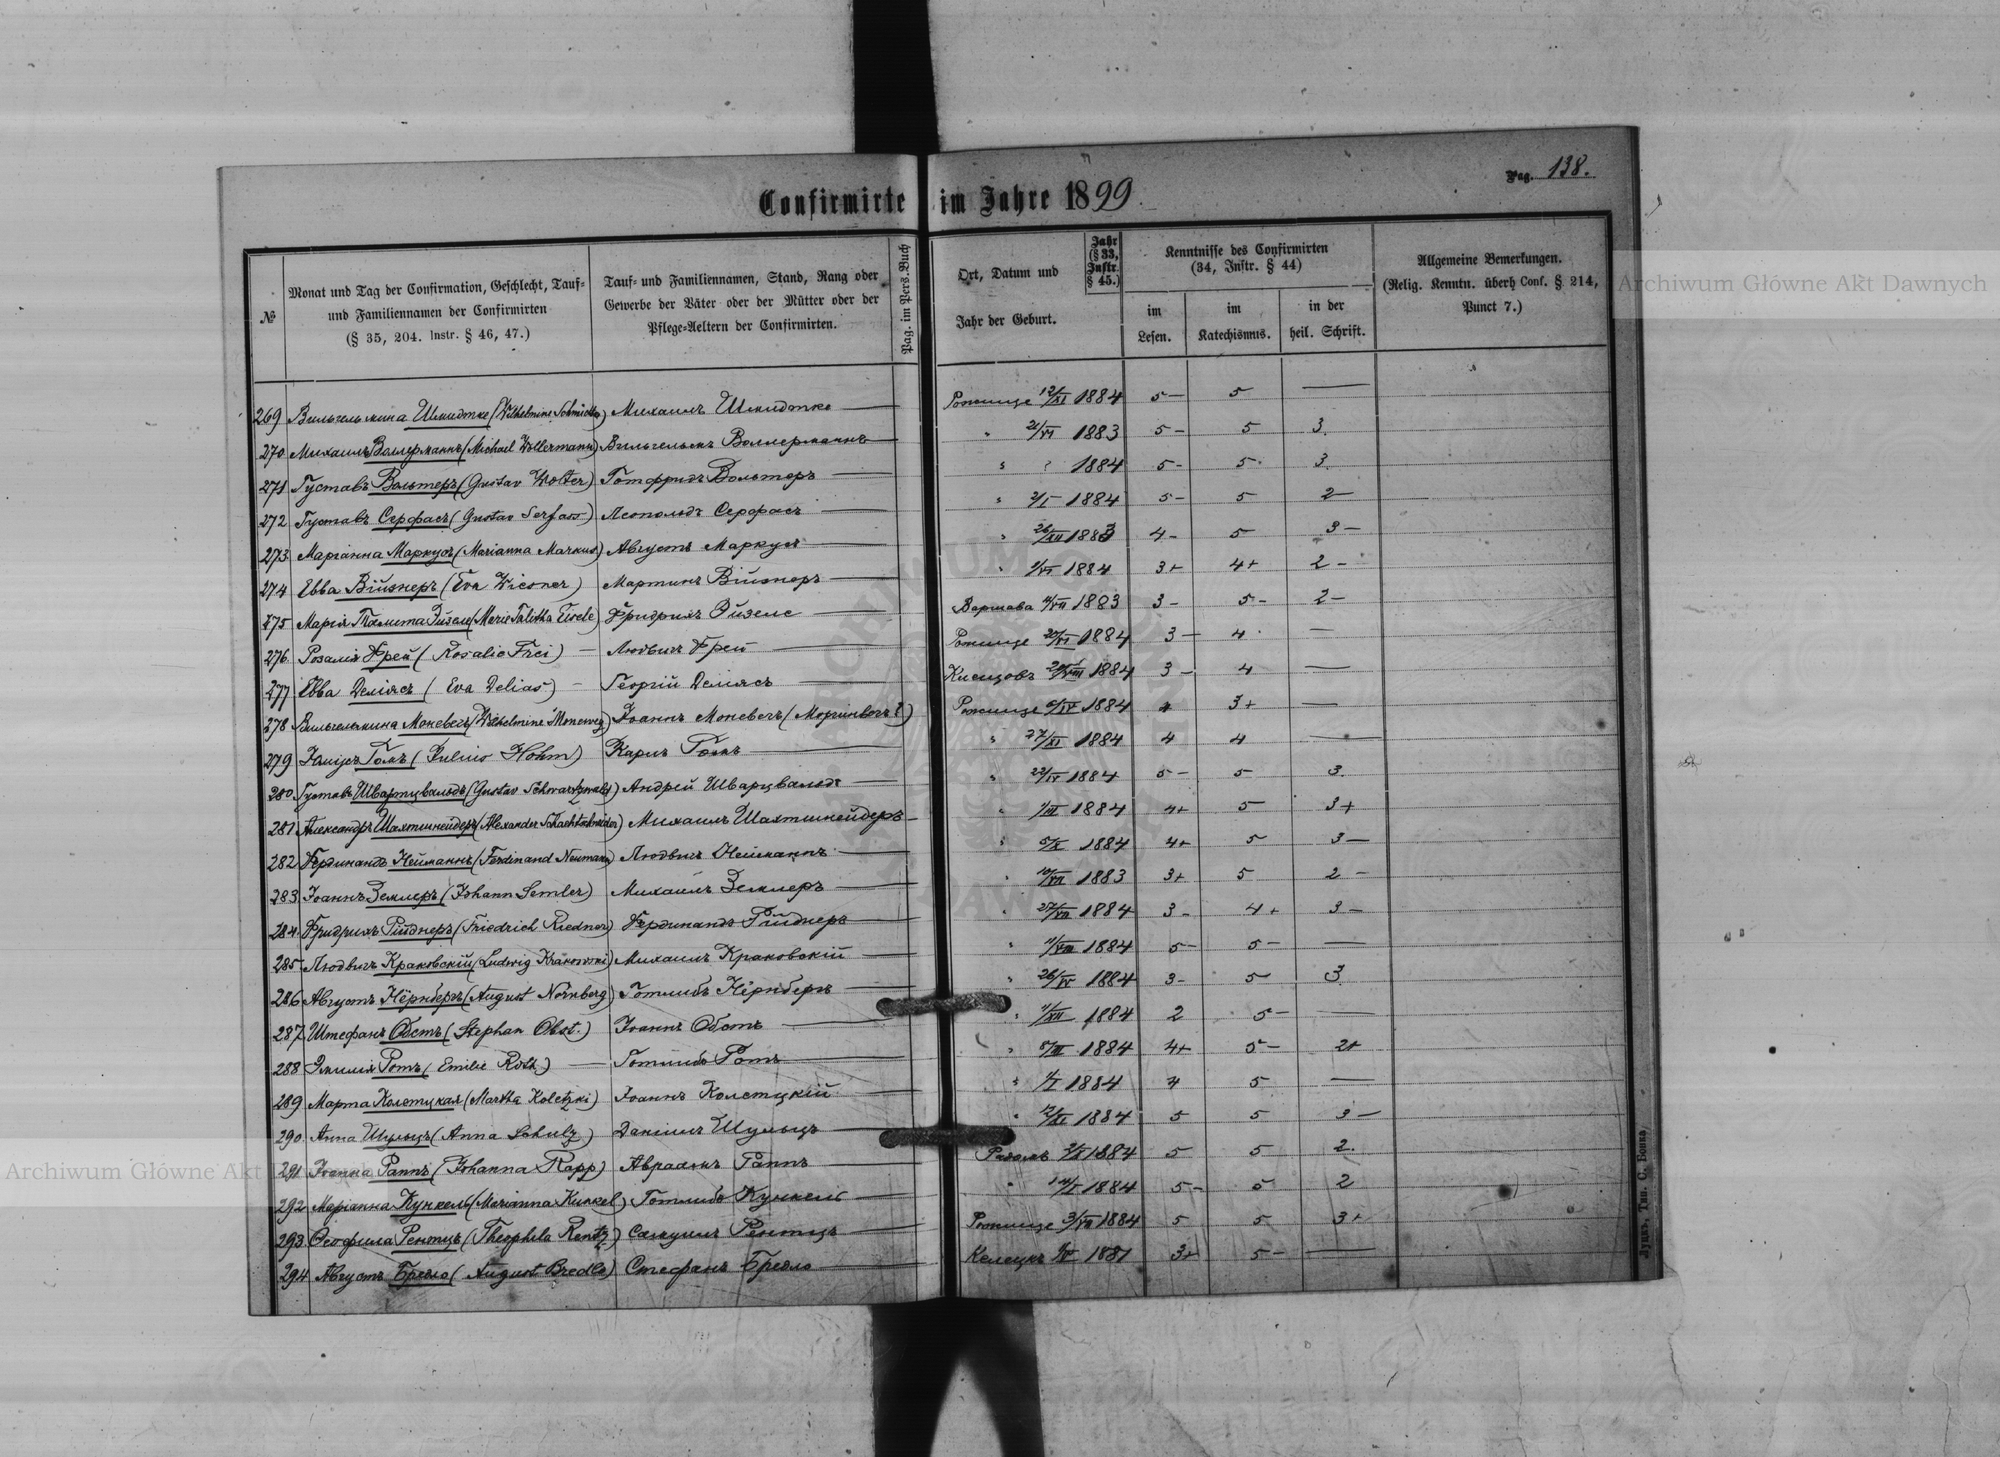 Pag. 138.
Confirmirte im Jahre 1899
№
Monat und Tag der Confirmation, Geschlecht, Tauf- und Familiennamen der Confirmirten (§ 35, 204. Instr. § 46, 47.)
Tauf- und Familiennamen, Stand, Rang oder Gewerbe der Väter oder der Mütter oder der Pflege-Aeltern der Confirmirten.
Pag. im Pers. Buch
Ort, Datum und Jahr der Geburt.
Jahr (§ 33, Instr. § 45.)
Kenntnisse des Confirmirten (34, Instr. § 44)
im Lesen.
im Katechismus.
in der heil. Schrift.
Allgemeine Bemerkungen. (Relig. Kenntn. überh Conf. § 214, Punct 7.)
269 Вильгельмина Шмидтке (Wilhelmine Schmidtke) Михаилъ Шмидтке — Рожище 12/XI 1884 5— 5 —
270. Михаилъ Воллерманнъ (Michael Wollermann) Вильгельмъ Воллерманнъ — " 21/VI 1883 5— 5 3.
271. Густавъ Вольтеръ (Gustav Wolter) Готфридъ Вольтеръ — " ? 1884 5- 5 3.
272 Густавъ Серфасъ (Gustav Serfass) Леопольдъ Серфасъ — " 2/I 1884 5- 5 2—
273. Маріанна Маркусъ (Marianna Markus) Августъ Маркусъ — " 26/XII 1883 4- 5 3—
274 Евва Візнеръ (Eva Wiesner) Мартинъ Візнеръ — " 1/VI 1884 3+ 4+ 2-
275 Марія Талита Эйзеле (Marie Talitha Eisele) Фридрихъ Эйзеле — Варшава 11/VII 1883 3- 5- 2-
276. Розалія Фрей (Rosalie Frei) — Людвигъ Фрей — Рожище 20/VI 1884 3— 4 —
277 Евва Деліасъ (Eva Delias) — Георгій Деліасъ — 1884 3- 4 —
278 Вильгельмина Моневегъ (Wilhelmine Moneweg) Іоаннъ Моневегъ — Рожище 6/IV 1884 4 3+ —
279 Юліусъ Гомъ (Julius Hohm) Карлъ Гомъ — " 27/XI 1884 4 4 —
280. Густавъ Шварцвальдъ (Gustav Schwartzwald) Андрей Шварцвальдъ — " 22/IV 1884 5- 5 3.
281. Александръ Шахтшнейдеръ (Alexander Schachtschneider) Михаилъ Шахтшнейдеръ — " 1/III 1884 4+ 5 3+
282. Фердинандъ Нейманнъ (Ferdinand Neumann) Людвигъ Нейманнъ — " 5/X 1884 4+ 5 3—
283. Іоаннъ Землеръ (Johann Semler) Михаилъ Землеръ — " 1883 3+ 5 2-
284. Фридрихъ Риднеръ (Friedrich Riedner) Фердинандъ Риднеръ " 27/VII 1884 3- 4+ 3—
285. Людвигъ Краковскій (Ludwig Krakowski) Михаилъ Краковскій — " 11/VIII 1884 5- 5- —
286 Августъ Нёрнбергъ (August Nörnberg) Готлибъ Нёрнбергъ " 26/IV 1884 3- 5 3
287. Штефанъ Обстъ (Stephan Obst.) Іоаннъ Обстъ — " 1/XII 1884 2 5- —
288 Эмилія Ротъ (Emilie Roth) — Готлибъ Ротъ — " 5/III 1884 4+ 5- 2+
289 Марта Колетцкая (Martha Koletzki) Іоаннъ Колетцкій " 1/I 1884 4 5 —
290. Анна Шульцъ (Anna Schulz) Даніилъ Шульцъ — " 1884 5 5 3—
291 Іоанна Раппъ (Johanna Rapp) Авраамъ Раппъ — 2/X 1884 5 5 2.
292 Маріанна Кункель (Marianna Kunkel) Готлибъ Кункель — " 1884 5- 5 2
293. Теофила Рентцъ (Theophila Rentz) Самуилъ Рентцъ — Рожище 3/VII 1884 5 5 3+
294 Августъ Бредло (August Bredlo) Стефанъ Бредло — 1881 3+ 5- —
Луцкъ, Тип. С. Бонка
Archiwum Główne Akt Dawnych
Archiwum Główne Akt D